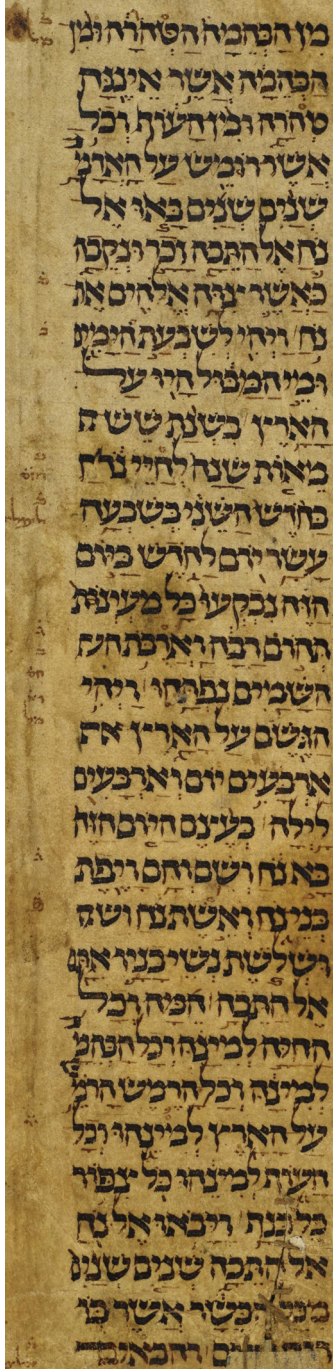 מן הבהמה הטהרה ומן
הבהמה אשר איננה
טהרה ומן העוף וכל
אשר רומש על האדמה
שנים שנים באו אל
נח אל התבה זכר ונקבה
כאשר צוה אלהים את
נח ויהי לשבעת הימים
ומי המבול היו על
הארץ בשנת שש
מאות שנה לחיי נח
בחדש השני בשבעה
עשר יום לחדש ביום
הזה נבקעו כל מעינות
תהום רבה וארבת
השמים נפתחו ויהי
הגשם על הארץ
ארבעים יום וארבעים
לילה בעצם היום הזה
בא נח ושם וחם ויפת
בני נח ואשת נח
ושלשת נשי בניו אתם
אל התבה המה וכל
החיה למינה וכל הבהמה
למינה וכל הרמש הרמש
על הארץ למינהו וכל
העוף למינהו כל צפור
כל כנף ויבאו אל נח
אל התבה שנים שנים
מכל הבשר אשר בו
והבאים